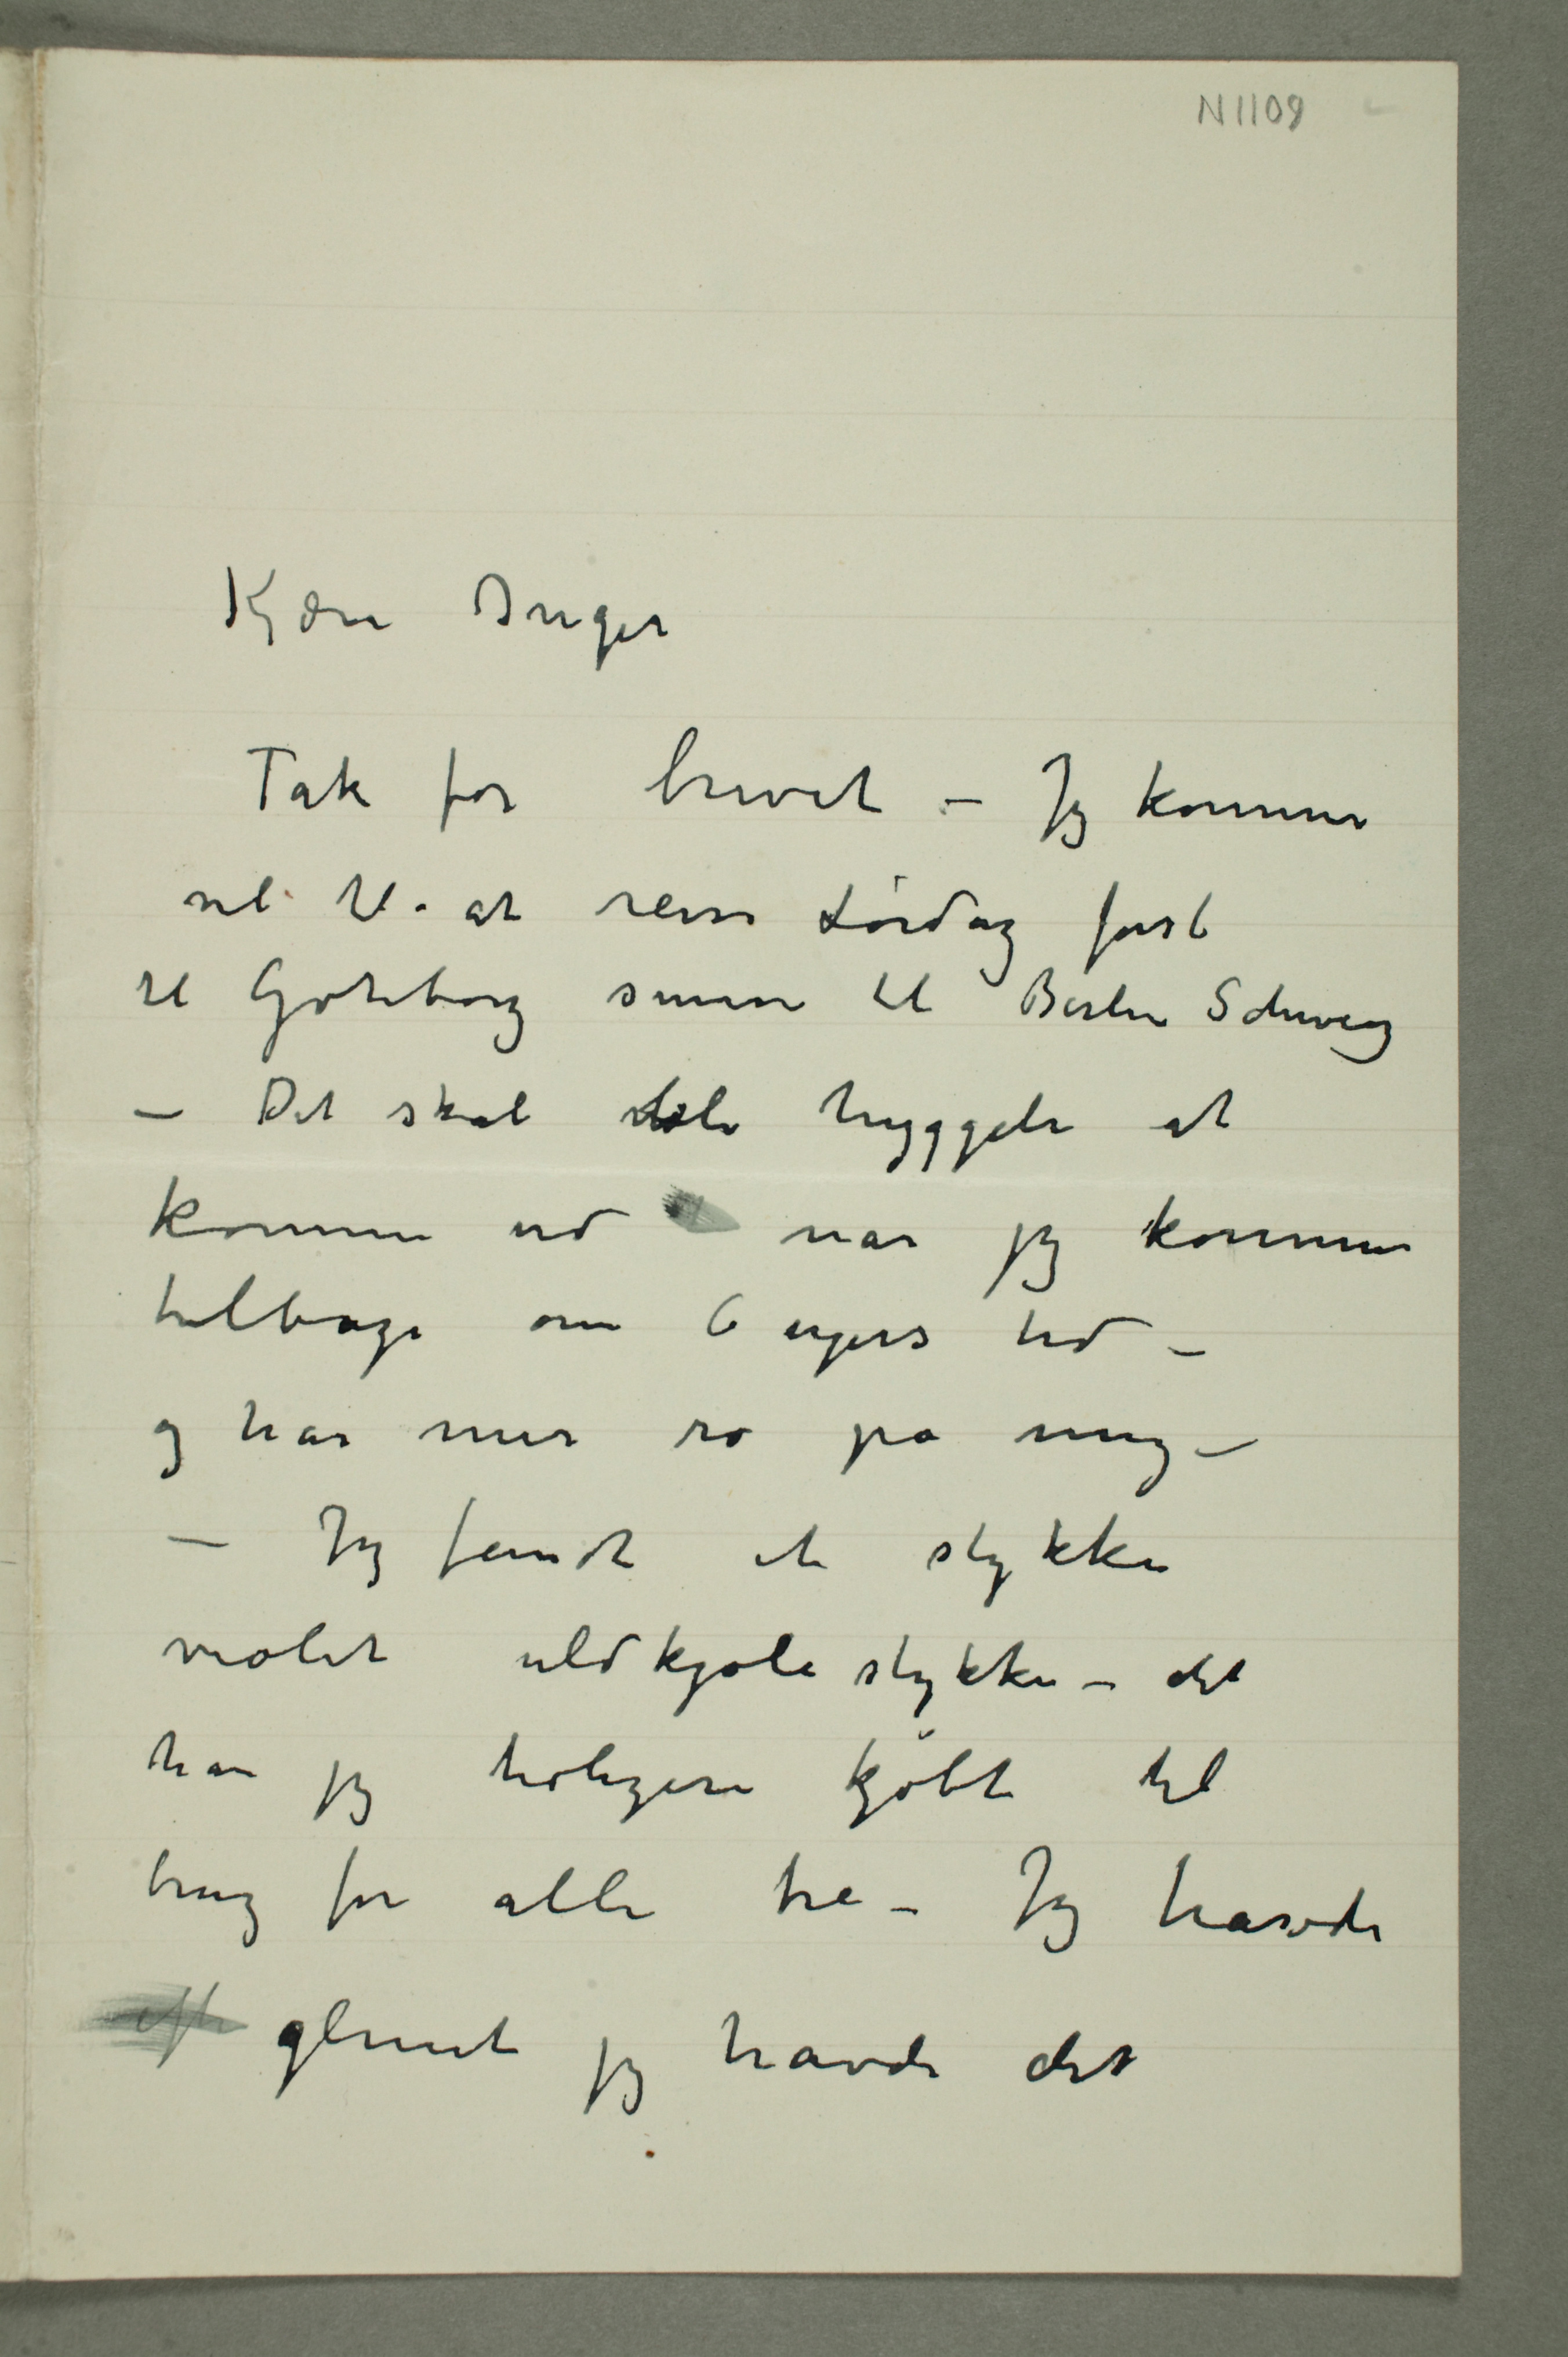 N1109
Kjære Inger
Tak for brevet – Jeg kommer
vel til at reise Lørdag først
til Göteborg senere til Berlin Schweiz
– Det skal bli hyggeli at
komme ud når jeg kommer
tilbage om 6 ugers tid –
og har mer ro på mig –
– Jeg fandt et stykke
violet uldkjole stykke – det
har jeg tidligere kjøbt til
brug for alle tre – Jeg havde
glemt jeg havde det